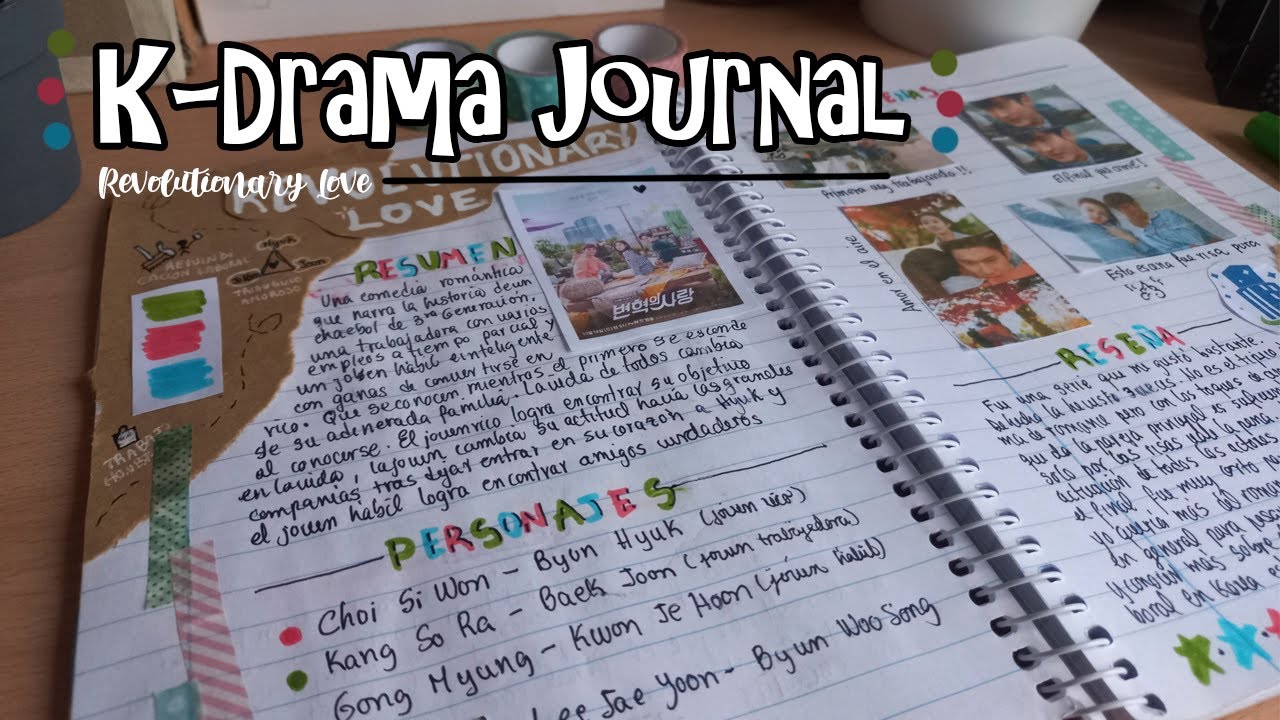 K-Drama Journal
Revolutionary Love
REVOLUTIONARY
LOVE
REIVINDI
CACIÓN LABORAL
TRIANGULO
AMOROSO
TRABAJO
RESUMEN
Una comedia romántica
que narra la historia de un
chaebol de 3ra Generación,
una trabajadora con varios
empleos a tiempo parcial y
un joven hábil e inteligente
con ganas de convertirse en
rico. Que se conocen mientras el primero se esconde
de su adinerada familia. La vida de todos cambia
al conocerse. El joven rico logra encontrar su objetivo
en la vida, la joven cambia su actitud hacia las grandes
companías tras dejar entrar en su corazón a Hyuk y
el joven hábil logra encontrar amigos verdaderos
변혁의 사랑
PERSONAJES
Choi Si Won - Byun Hyuk (joven rico)
Kang So Ra - Baek Joon (joven trabajadora)
Gong Myung - Kwon Je Hoon (joven hábil)
Lee Jae Yoon - Byun Woo Song
ENAS
Primera vez trabajando!!
El final que amé!
Amor en el aire
Esta escena fue risa pura
RESEÑA
Fue una serie que me gustó bastante.
ma de romance pero con los toques de
la pareja principal es
solo por las risas vale la pena
actuación de todos los actores
el final fue muy
yo quería más del roman
En general para pasar
y conocer más sobre
boral en Korea es